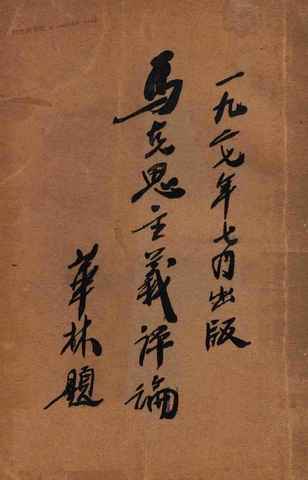 一九二七年七月出版
馬克思主義評論
華林題